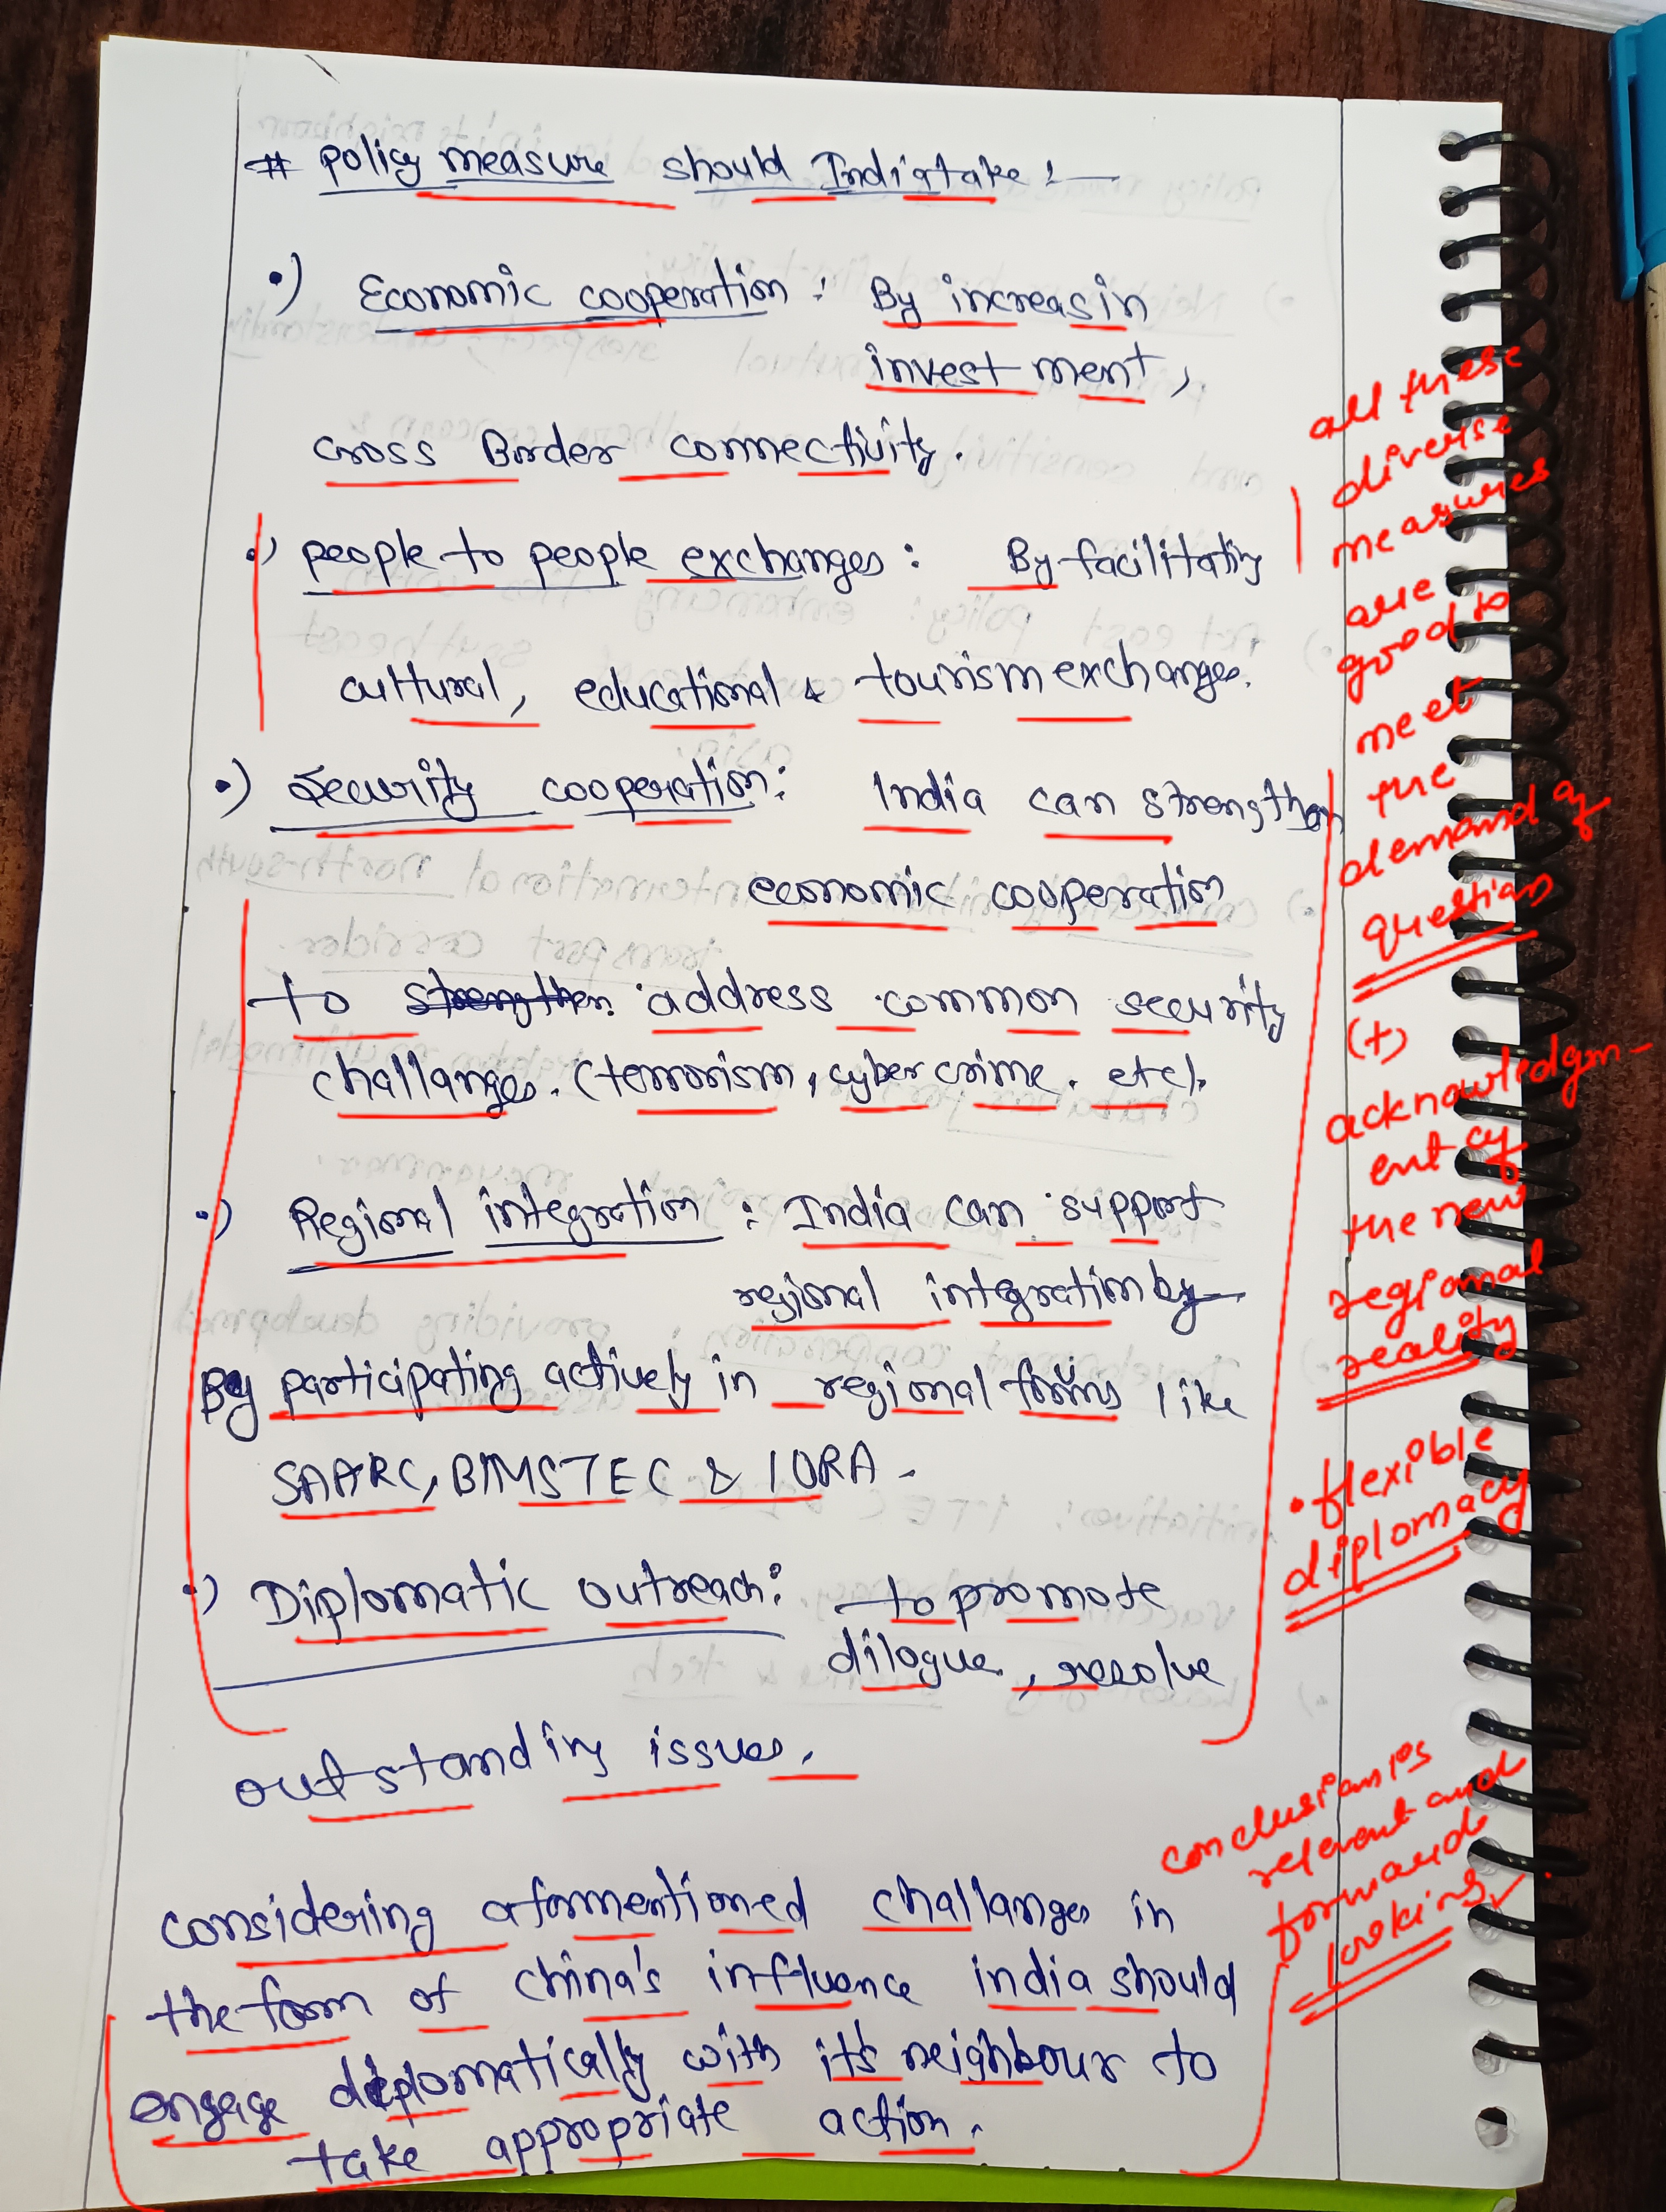 # policy measure should India take :—
•) Economic cooperation : By increasin
investment,
cross Border connectivity.
•) people to people exchanges : By facilitating
cultural, educational & tourism exchanges.
•) Security cooperation : India can strengthen
economic cooperation
to strengthen address common security
challanges. (terrorism, cyber crime. etc).
•) Regional integration : India can support
regional integration by
By participating actively in regional forums like
SAARC, BIMSTEC & IORA.
•) Diplomatic outreach : to promote
dilogue, resolve
outstanding issues.
considering aformentioned challanges in
the form of china's influence india should
engage diplomatically with it's neighbour to
take appropriate action.
all these
diverse
measures
are
good to
meet
the
demand of
question
(+)
acknowledgm-
ent of
the new
regional
reality
• flexible
diplomacy
conclusion is
relevant and
forward
looking ✓.